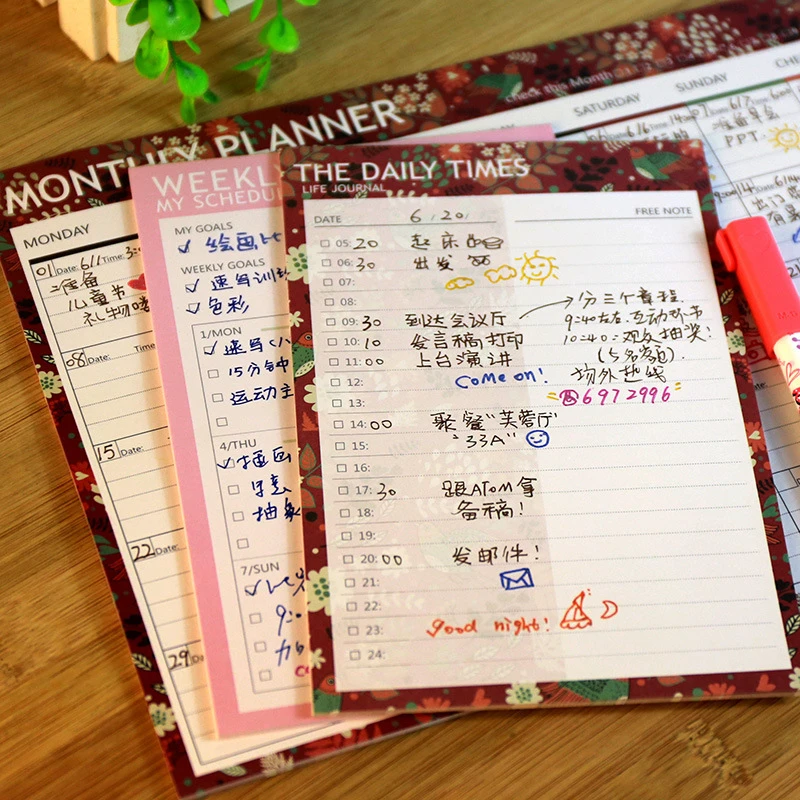 MONTHLY PLANNER
check the Month
SATURDAY
SUNDAY
MONDAY
01 Date: 6/1 Time:
准备
儿童节
礼物喽
08 Date: Time
15 Date:
22 Date:
29
PPT
WEEKLY
MY SCHEDU
MY GOALS
绘画比
WEEKLY GOALS
速写训
色彩
1/MON
速写
15分钟
运动主
4/THU
插画
抽象
7/SUN
THE DAILY TIMES
LIFE JOURNAL
DATE 6/20/ FREE NOTE
05:20 起床
06:30 出发
07:
08:
09:30 到达会议厅 分三个章程.
9:40左右互动环节
10:10 发言稿打印 10:40=观众抽奖!
11:00 上台演讲 (5名观)
12: Come on! 场外热线
13: ☎6972996
14:00 聚餐"芙蓉厅"
15: "33A"
16:
17:30 跟ATOM拿
18: 备稿!
19:
20:00 发邮件!
21:
22:
23: good night!
24: